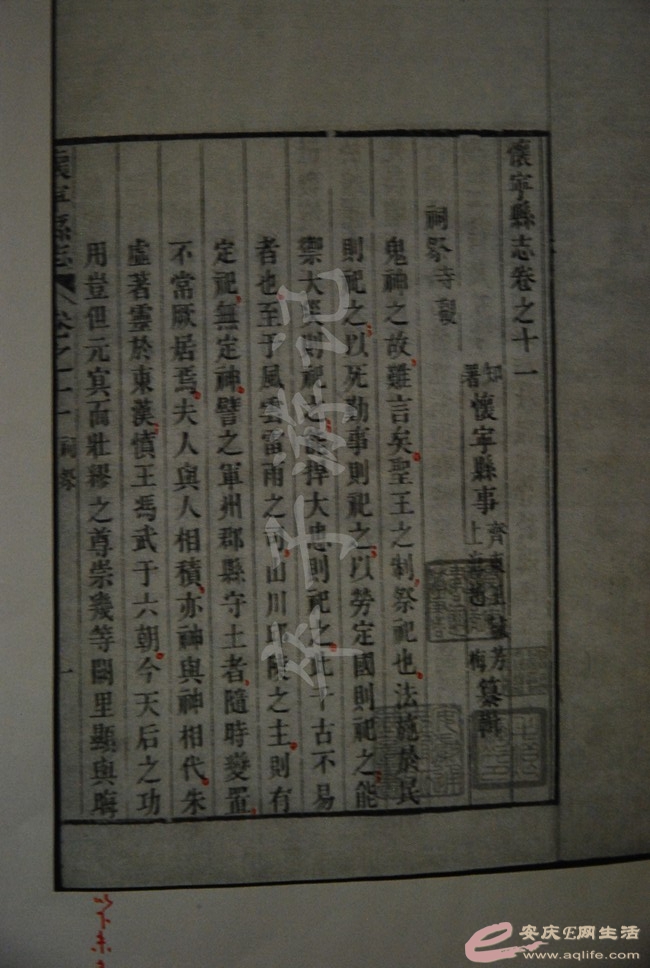 懷寧縣志卷之十一
知署懷寧縣事齊東上海芳梅纂輯
祠祭寺觀
鬼神之故難言矣聖王之制祭祀也法施於民
則祀之以死勤事則祀之以勞定國則祀之能
禦大災則祀之能捍大患則祀之此千古不易
者也至于風雲雷雨之司山川邱陵之主則有
定祀無定神譬之軍州郡縣守土者隨時變置
不常厥居焉夫人與人相積亦神與神相代朱
虛著靈於東漢慎王為武于六朝今天后之功
用豈但元冥而壯繆之尊崇幾等闕里顯與晦
懷寧縣志
卷之十一 祠祭
一
安庆E网生活
www.aqlife.com